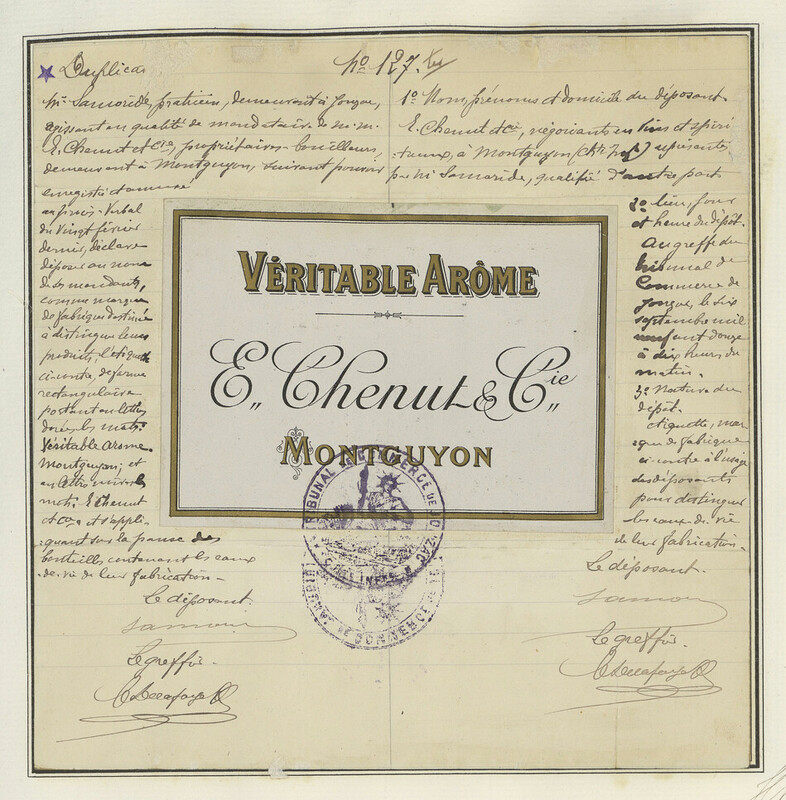 Duplicata
No 127.
Mr Samoride, praticien, demeurant à Jonzac,
agissant en qualité de mandataire de M.M.
E. Chenut et Cie, propriétaires-bouilleurs,
demeurant à Montguyon, suivant pouvoir
enregistré et annexé
au procès-Verbal
du Vingt février
dernier, déclare
déposer au nom
de ses mandants,
comme marque
de fabrique destinée
à distinguer leurs
produits, l'étiquette
ci-contre, de forme
rectangulaire
portant en lettres
dorées les mots:
Véritable Arome.
Montguyon; et
en lettres noires les
mots: E. Chenut
et Cie et s'appli-
quant sur la panse des
bouteilles contenant les eaux
-de-vie de leur fabrication-
Le déposant.
Le greffier.
1o Nom, prénoms et domicile du déposant.
E. Chenut et Cie, négociants en Vins et spiri
-tueux, à Montguyon (Chte Infre) représentés
par Mr Samoride, qualifié d'autre part.
2o lieu, jour
et heure du dépôt.
Au greffe du
tribunal de
Commerce de
Jonzac, le six
septembre mil
neuf cent douze
à dix heures du
matin.
3o Nature du
dépôt.
Etiquette, mar
-que de fabrique
ci-contre à l'usage
des déposants
pour distinguer
les eaux-de-vie
de leur fabrication-
Le déposant.
Le greffier.
VÉRITABLE ARÔME
E. Chenut & Cie
MONTGUYON
TRIBUNAL DE COMMERCE DE JONZAC
TRIBUNAL DE COMMERCE DE